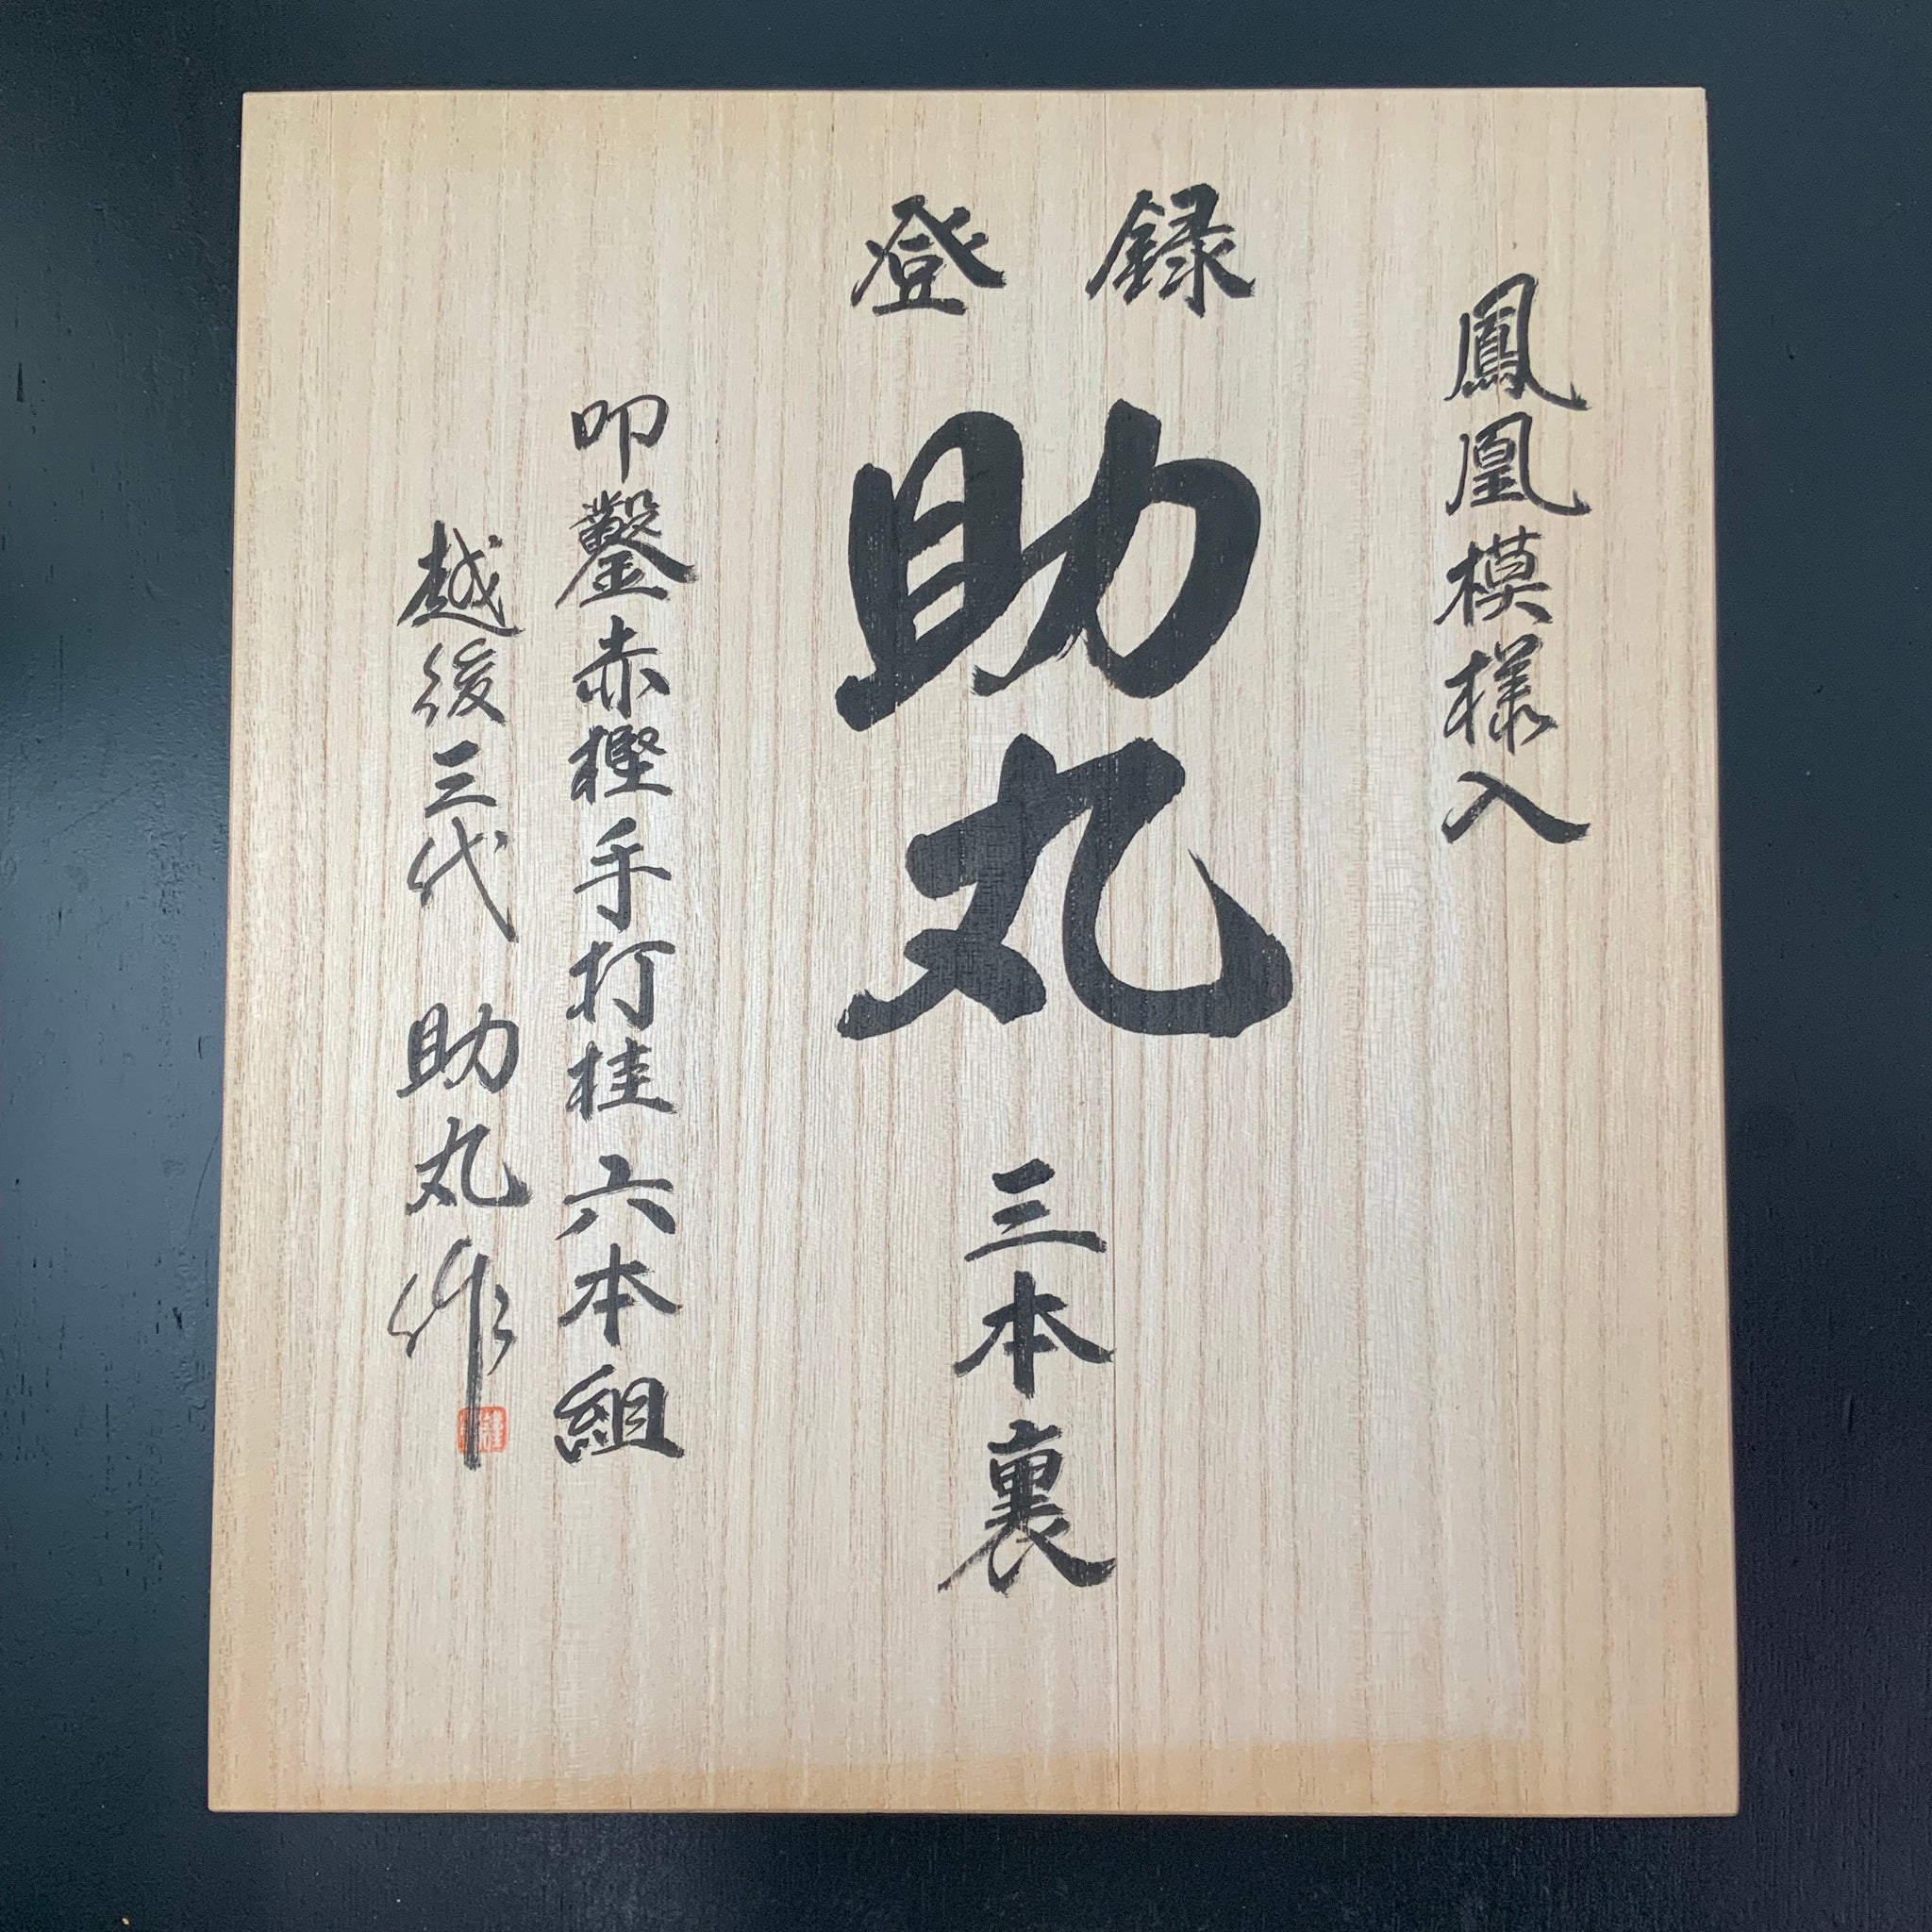 鳳凰模様入
登録
助丸
三本裏
叩鑿赤樫手打桂六本組
越後三代 助丸作